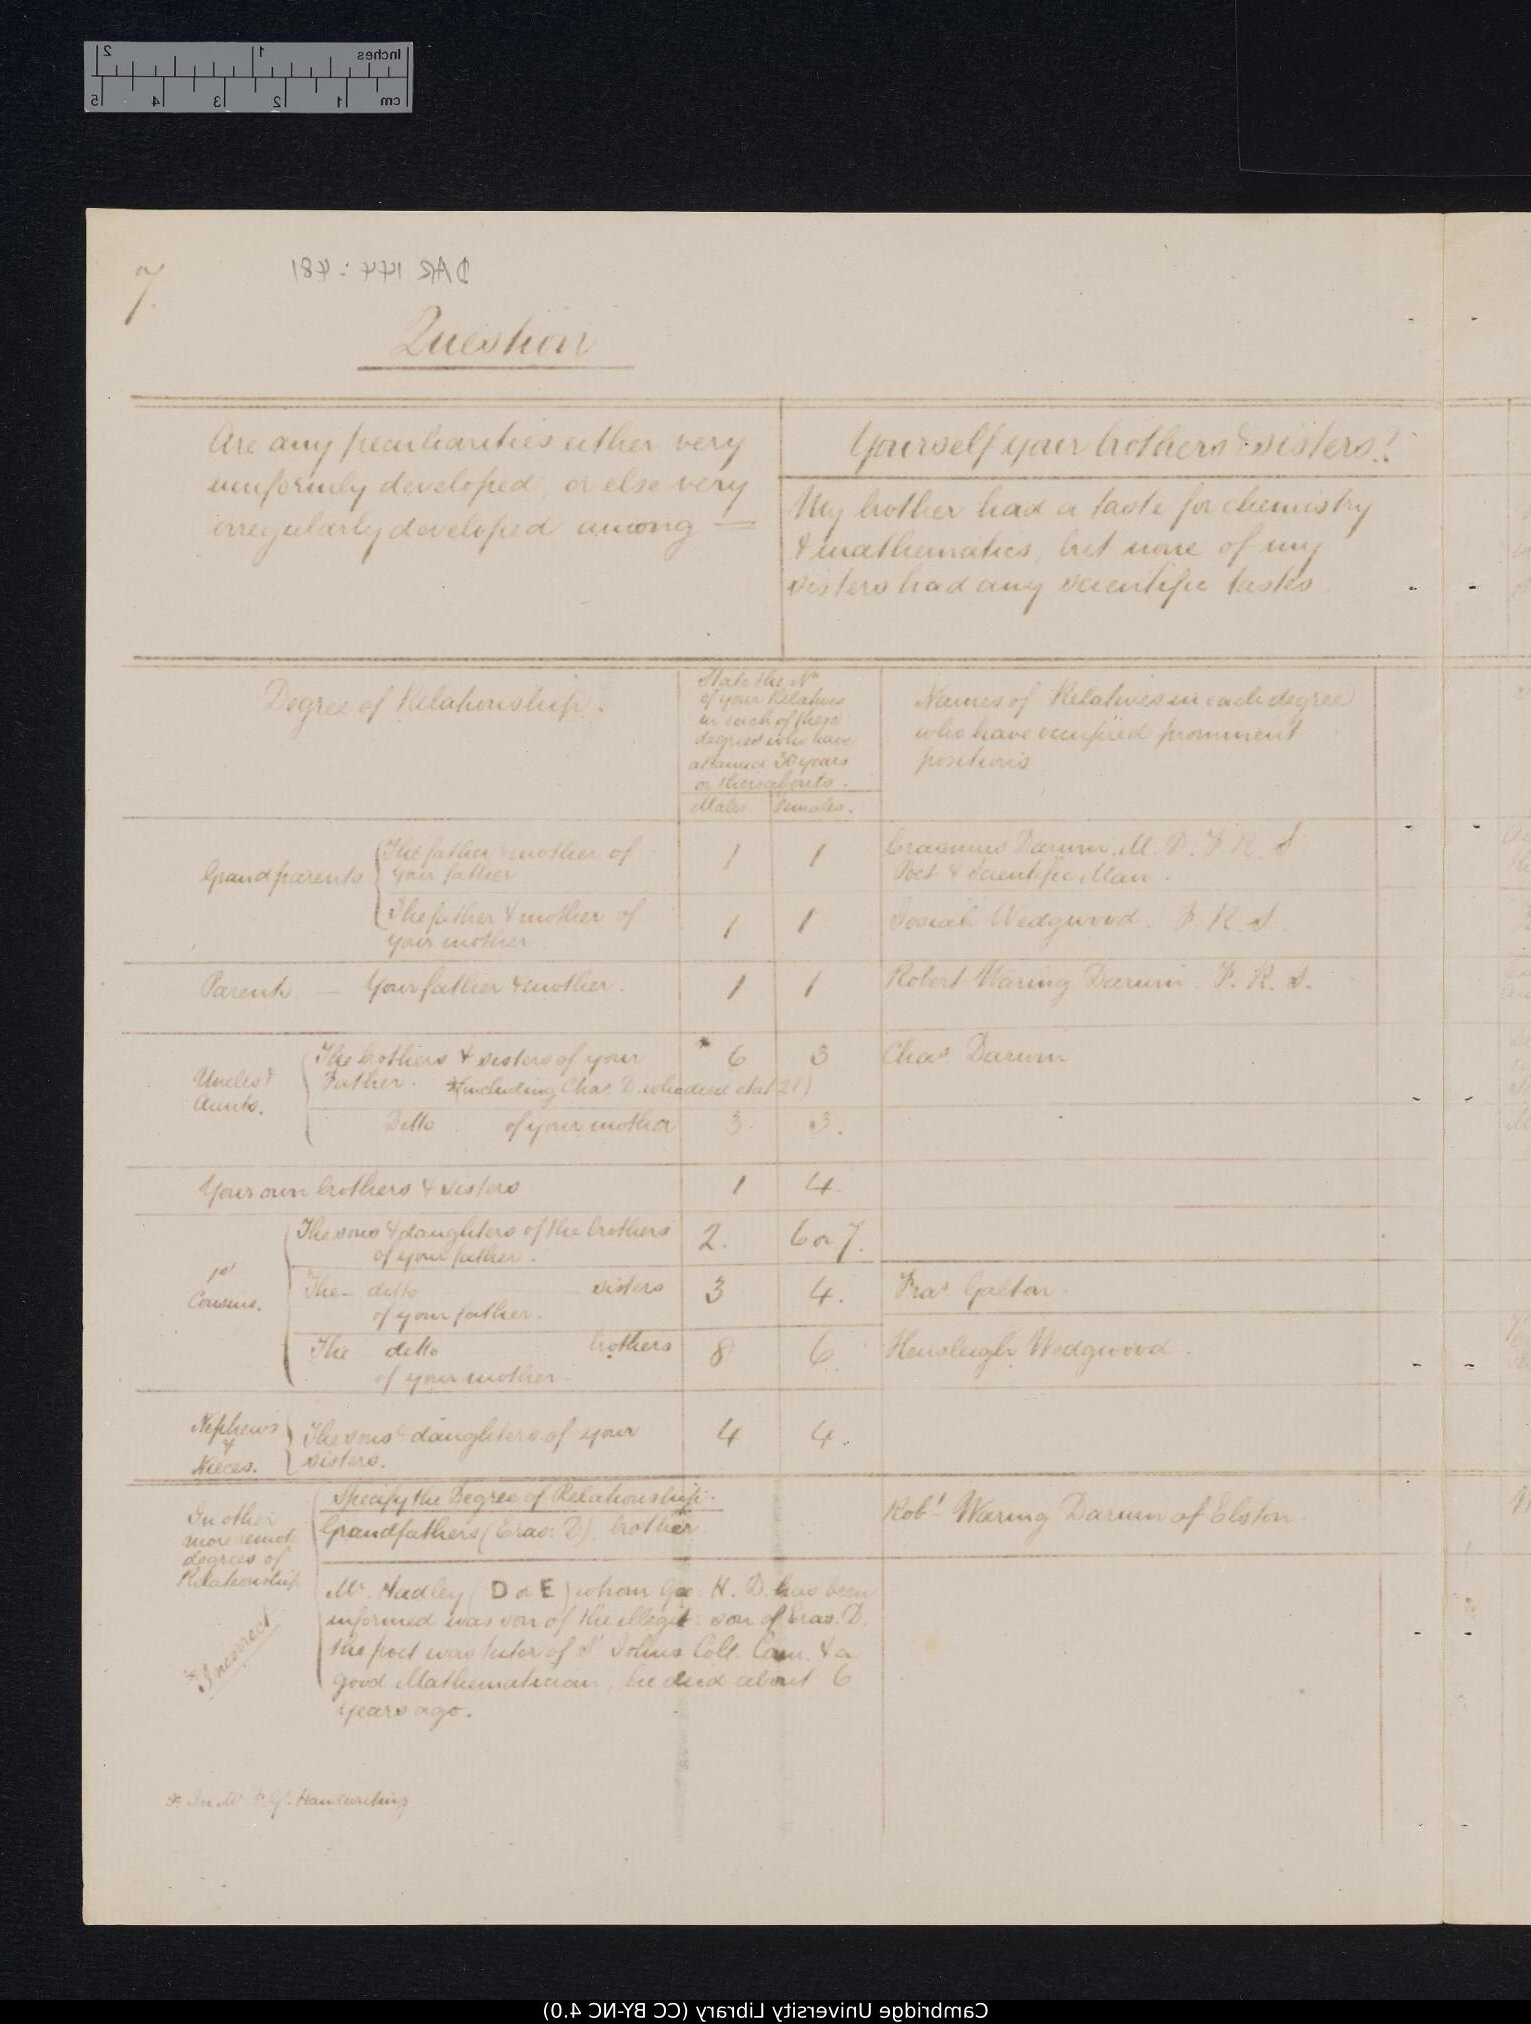 inches 1 2
cm 1 2 3 4 5
7.
DAR 144:481
Question
Are any peculiarities either very
uniformly developed, or else very
irregularly developed among =
Yourself your brothers & sisters?
My brother had a taste for chemistry
& mathematics, but none of my
sisters had any scientific tastes.
Degree of Relationship.
State the No
of your Relatives
in each of these
degrees who have
attained 30 years
or thereabouts.
Males Females.
Names of Relatives in each degree
who have occupied prominent
positions
Grandparents
The father & mother of
your father
1 1
Erasmus Darwin. M. D. F. R. S
Poet & Scientific Man.
The father & mother of
your mother.
1 1
Josiah Wedgwood. F. R. S.
Parents — Your father & mother. 1 1 Robert Waring Darwin. F. R. S.
Uncles &
Aunts.
The brothers & sisters of your * 6 3 Chas Darwin
Father. *(including Chas. D. who died etat 21)
Ditto of your mother 3. 3.
Your own brothers & sisters 1 4.
1st
Cousins.
The sons & daughters of the brothers
of your father.
2. 6 or 7.
The — ditto sisters
of your father.
3 4. Fras Galton.
The ditto brothers
of your mother.
8 6. Hensleigh Wedgwood.
Nephews
&
Nieces.
The sons & daughters of your
sisters.
4 4.
In other
more remote
degrees of
Relationship
Specify the Degree of Relationship.
Grandfathers (Eras: D). brother.
Robt Waring Darwin of Elston.
Mr. Hadley (D or E) whom Geo. H. D. has been
informed was son of the illegit. son of Eras. D.
the poet was tutor of St Johns Coll. Cam. & a
good Mathematician, he died about 6
years ago.
*Incorrect
* In Mr F. G's. Handwriting
Cambridge University Library (CC BY-NC 4.0)